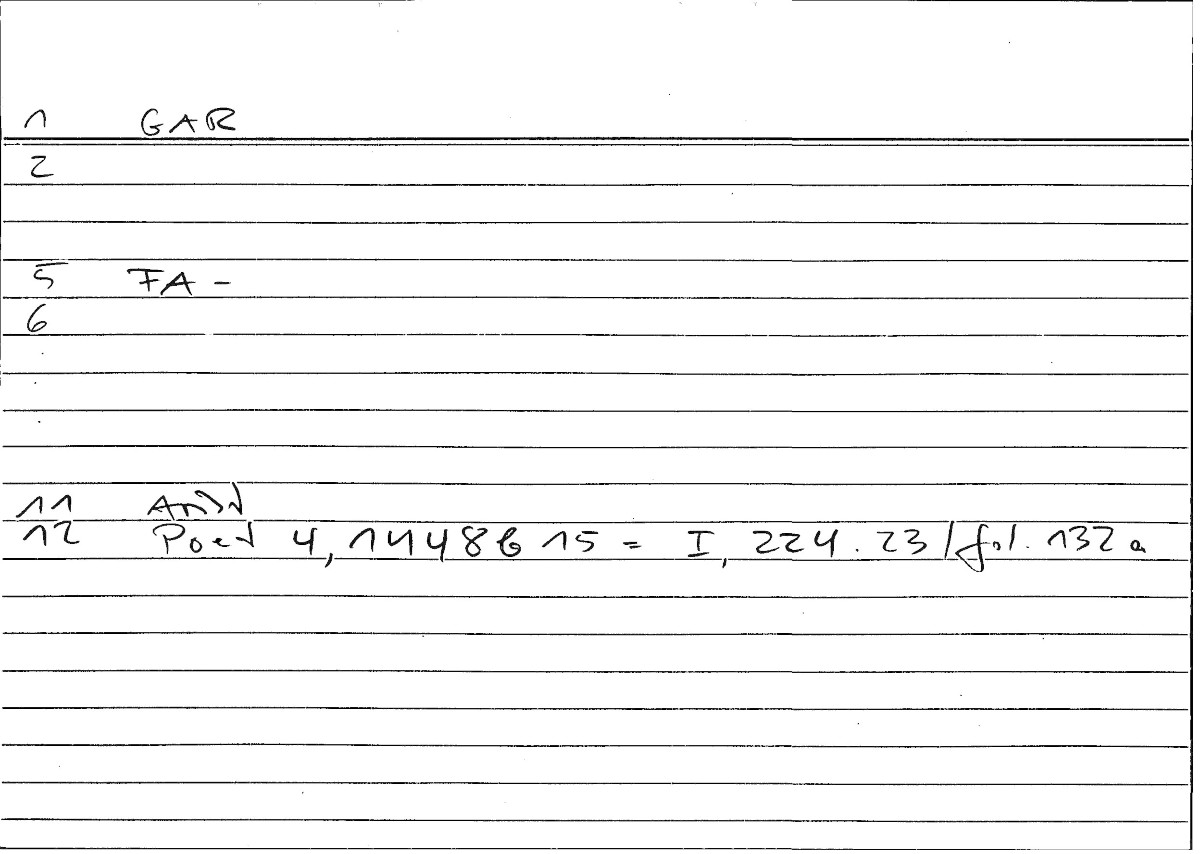 1 GAR
2
5 FA -
6
11
12 Poet 4, 1448b 15 = I, 224. 23 / fol. 132a